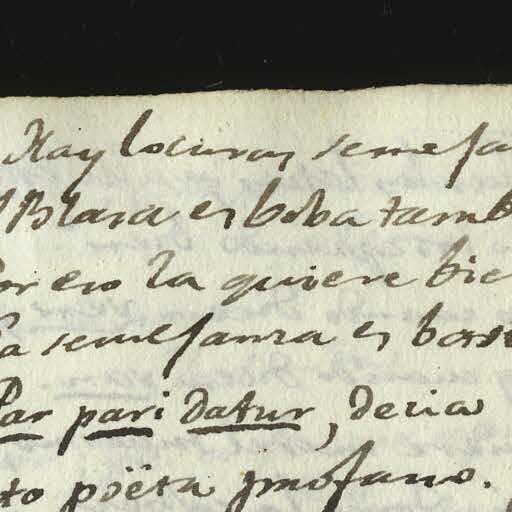 Hay locuras semeja
Blasa es boba tamb
por eso la quiere bie
la semejanza es bast
Par pari datur, decia
to poëta profano.